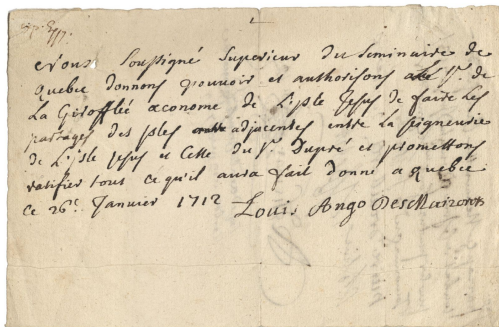 Nous Soussigné Superieur du Seminaire de
Quebec donnons pouvoir et authorisons Le Sr. de
La Girofflé œconome de L'isle Jesus de faire Les
partages des isles adjacentes entre La Seigneurie
de L'isle Jesus et Celle du Sr. Dupré et promettons
ratifier tout ce qu'il aura fait donné a quebec
ce 26e. Janvier 1712 Louis Ango DesMaizerets